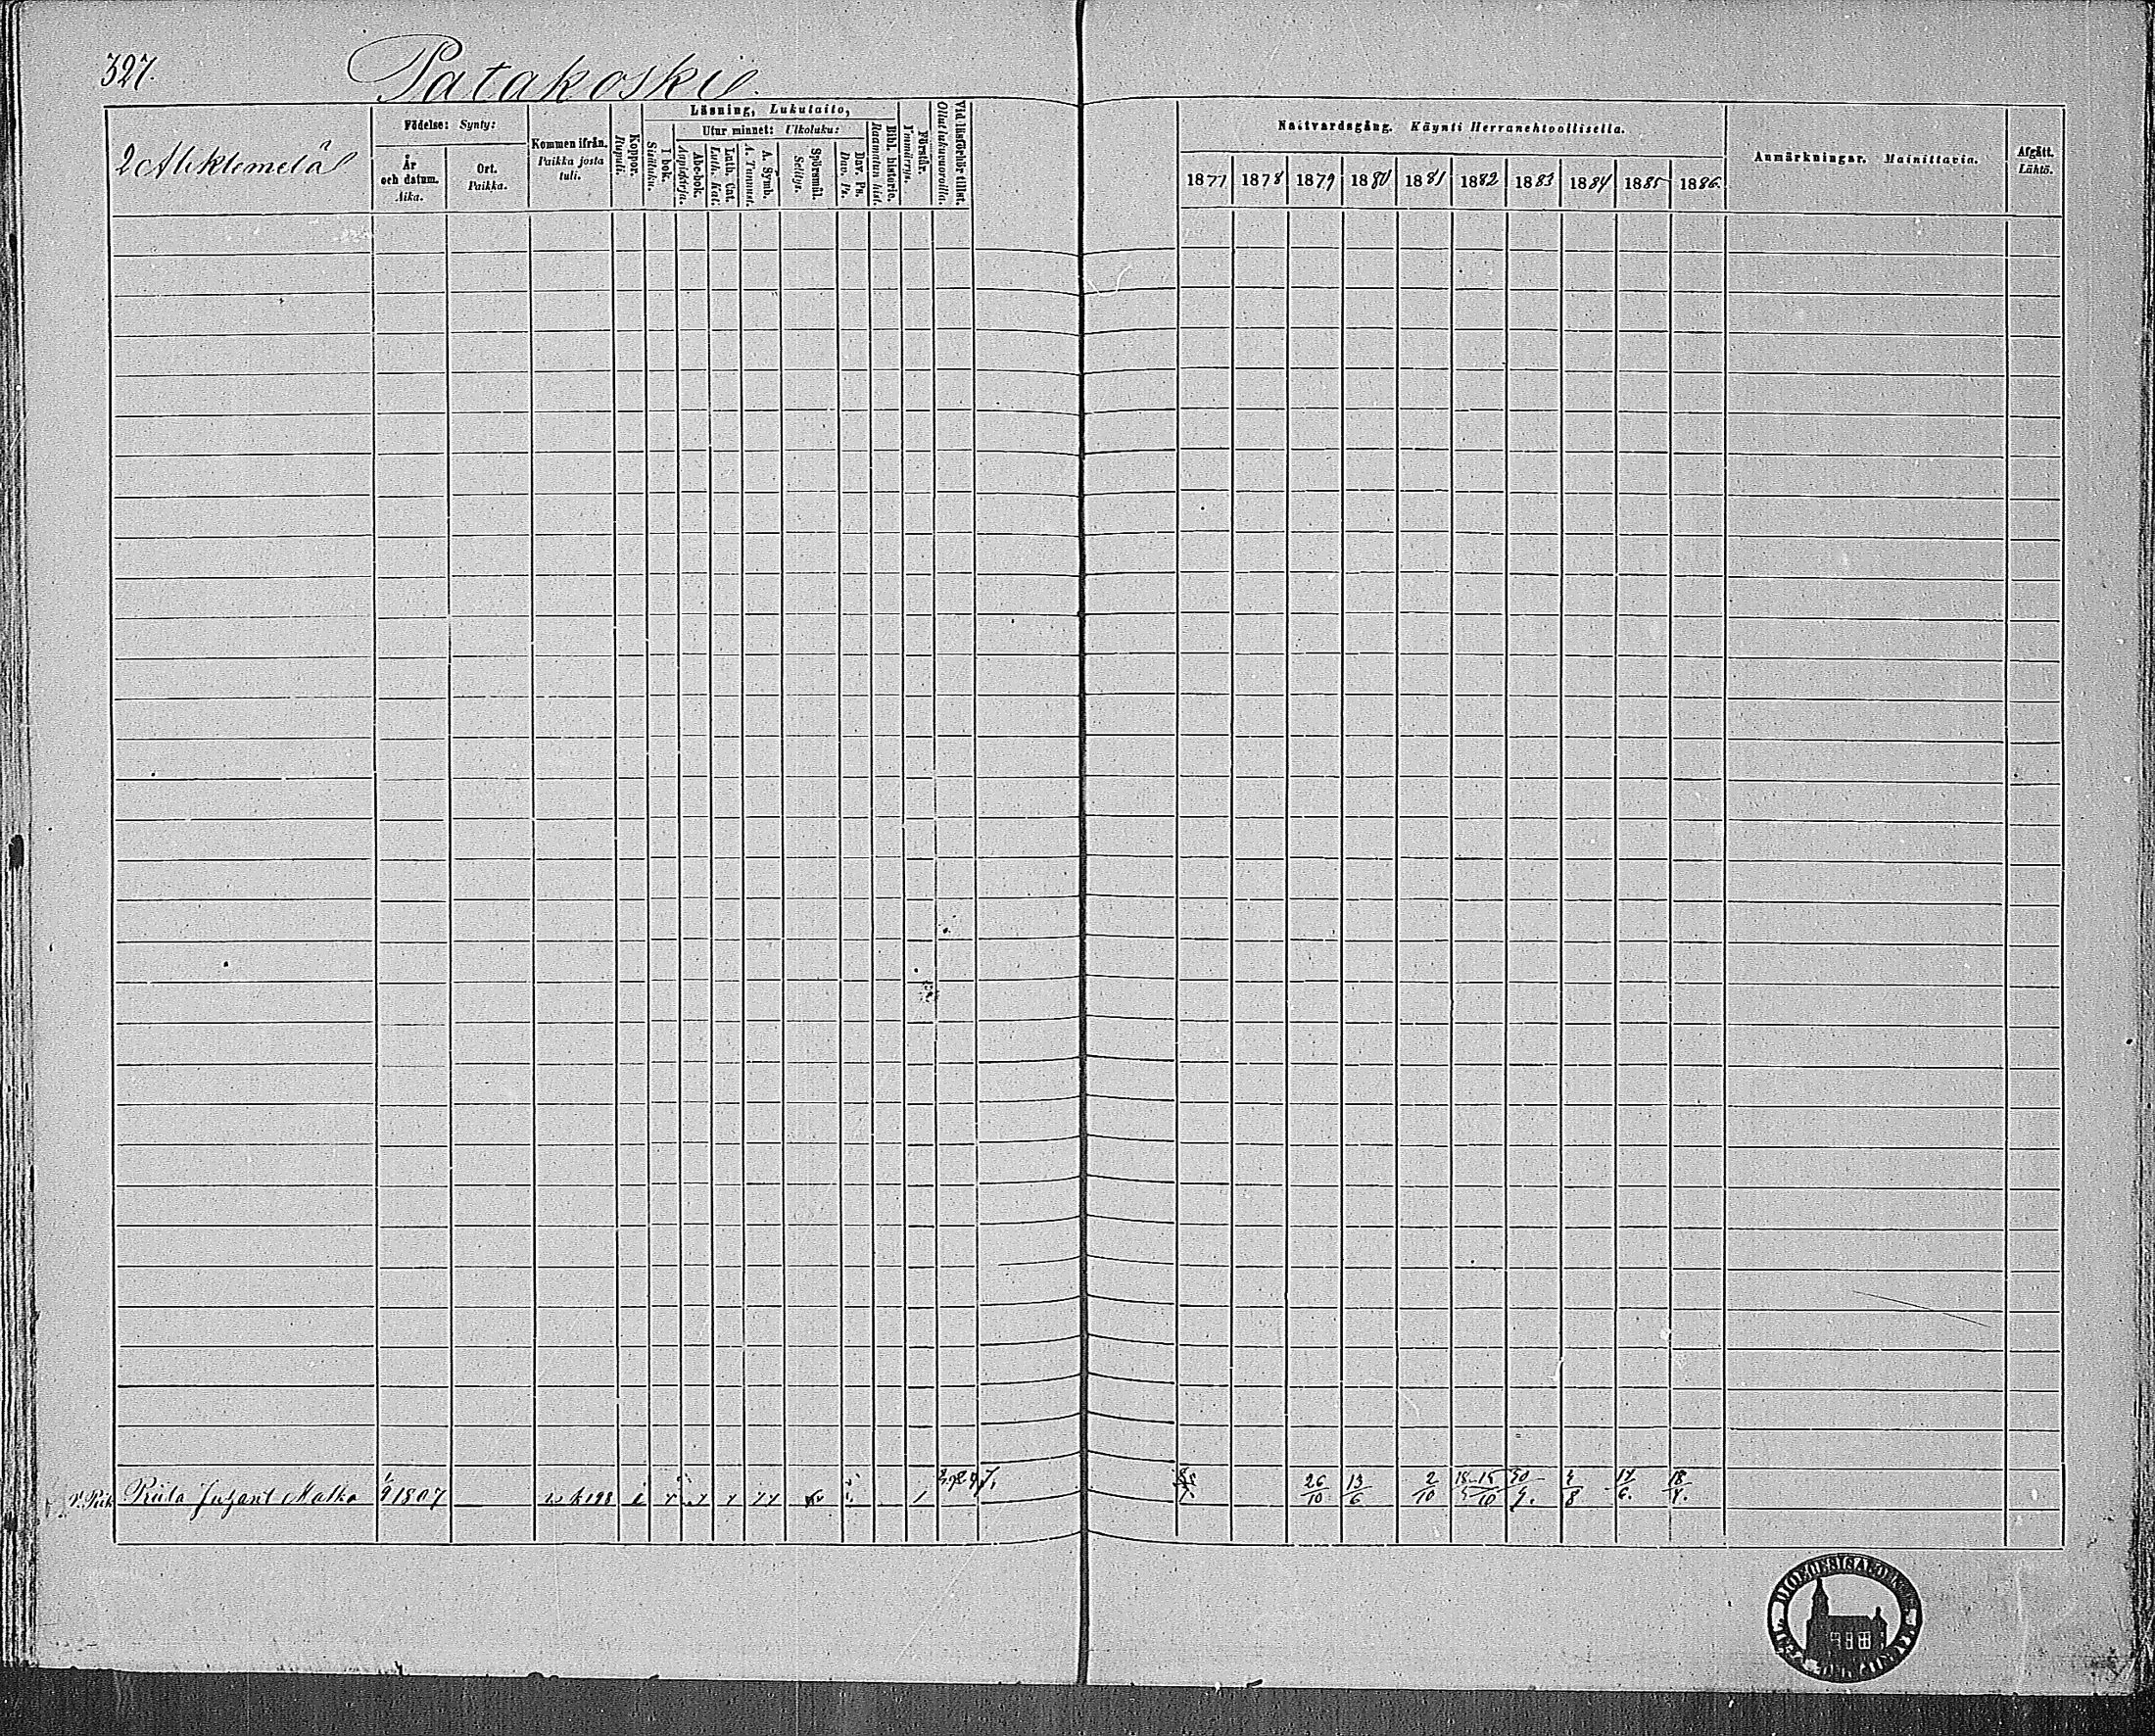 327.
Patakoski
2 Aliklemelä
Födelse: Synty:
År och datum. Aika.
Ort. Paikka.
Kommen ifrån. Paikka josta tuli.
Koppor. Rupuli.
Läsning, Lukutaito,
I bok. Sisäluku.
Utur minnet: Ulkoluku:
Abc-bok. Aapiskirja.
Luth. Cat. Luth. Kat.
A. Symb. A. Tunnust.
Spörsmål. Selitys.
Dav. Ps. Dav. Ps.
Bibl. historie. Raamatun hist.
Förstår. Ymmärrys.
Vid läsförhör tillst. Ollut lukuvuoroilla.
Nattvardsgång. Käynti Herranehtoollisella.
1877 1878 1879 1880 1881 1882 1883 1884 1885 1886.
Anmärkningar. Mainittavia.
Afgått. Lähtö.
Riita Juhant Matka 1/9 1807 k 198 26/10 13/6 2/10 18/5 15/10 30/9. 17/6. 18/4.